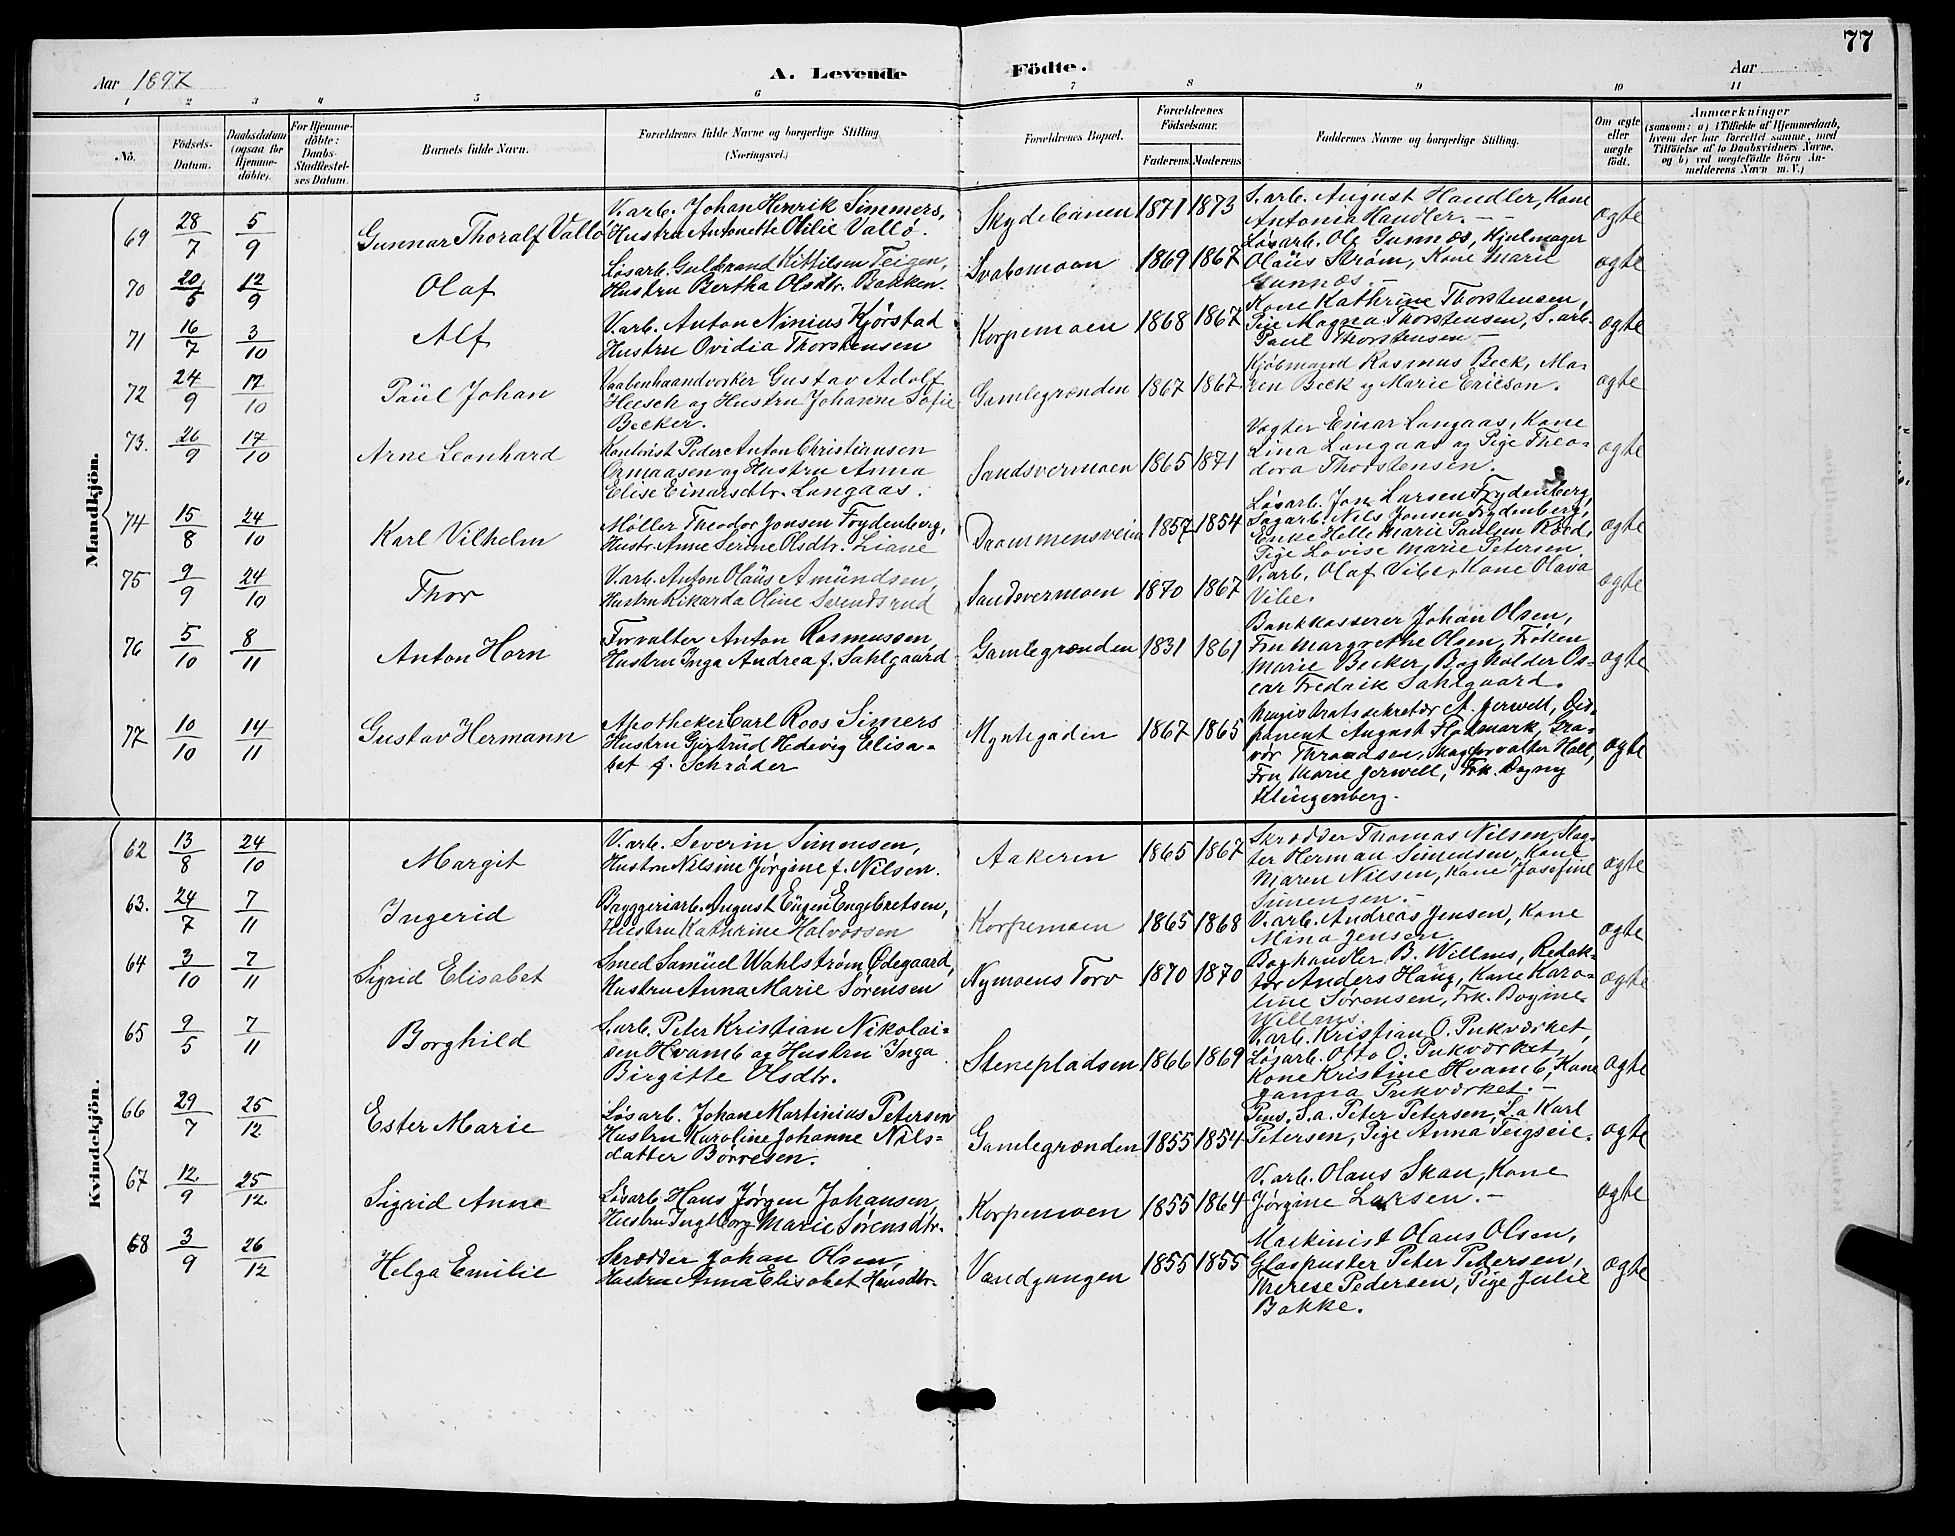 77
Aar 1897
A. Levende Födte.
Aar
1 2 3 4 5 6 7 8 9 10 11
No.
Födsels-Datum.
Daabsdatum (ogsaa for Hjemme-döbte).
For Hjemme-döbte: Daabs-Stadfæstelses Datum.
Barnets fulde Navn.
Forældrenes fulde Navne og borgerlige Stilling (Næringsvei.)
Forældrenes Bopæl.
Forældrenes Födselsaar.
Faderens. Moderens.
Faddernes Navne og borgerlige Stilling.
Om ægte eller uægte födt.
Anmærkninger
(saasom: a) i Tilfælde af Hjemmedaab, hvem der har forrettet samme, med Tilföielse af to Daabsvidners Navne. og b) ved uægtefödte Börn Anmelderens Navn m.V.)
Mandkjön.
69 28/7 5/9 Gunnar Thoralf Vallø
V. arb. Johan Henrik Simmers,
Hustru Antonette Otilie Vallø.
Skydebanen 1871 1873
S. arb. August Handler, Kone
Antonia Handler. - -
ægte
70 20/5 12/9 Olaf
Løsarb. Gulbrand Kittilsen Teigen,
Hustru Bertha Olsdtr. Bakken.
Svabomoen 1869 1867
Løsarb. Ole Gunnæs, Hjulmager
Olaüs Strøm, Kone Marie
Gunnæs. -
ægte
71 16/7 3/10 Alf
V. arb. Anton Ninius Kjørstad
Hustru Ovidia Thorstensen
Korpemoen 1868 1867
Kone Kathrine Thorstensen,
Pige Magna Thorstensen, S. arb.
Paul Thorstensen -
ægte
72 24/9 17/10 Paül Johan
Vaabenhaandverker Gustav Adolf
Heesch og Hustru Johanne Sofie
Becker.
Gamlegrænden 1867 1867
Kjøbmand Rasmus Beck, Ma-
ren Beck og Marie Ericson.
ægte
73. 26/9 17/10 Arne Leonhard
Kontorist Peder Anton Christiansen
Ormaasen og Hustru Anna
Elise Einarsdtr. Langaas.
Sandsvermoen 1865 1871
Vogter Einar Langaas, Kone
Lina Langaas og Pige Theo-
dora Thorstensen.
ægte
74 15/8 24/10 Karl Vilhelm
Møller Theodor Jonsen Frydenberg,
Hustr. Anne Serine Olsdtr. Liane
Drammensveien 1857 1854
Løsarb. Jon Larsen Frydenberg,
Sagarb. Nils Jonsen Frydenberg,
Enke Helle Marie Paulsen
Pige Lovise Marie Petersen.
ægte
75 9/9 24/10 Thor
V. arb. Anton Olaüs Amündsen,
Hustru Rikarda Oline Svendsrud
Sandsvermoen 1870 1867
V. arb. Olaf Vibe, Kone Olava
Vibe.
ægte
76 5/10 8/11 Anton Horn
Forvalter Anton Rasmussen
Hustru Inga Andrea f. Sahlgaard
Gamlegrænden 1831 1861
Bankkasserer Johan Olsen,
Fru Margrethe Olsen, Frøken
Marie Becker, Bogholder Os-
car Fredrik Sahlgaard.
ægte
77 10/10 14/11 Gustav Hermann
Apotheker Carl Roos Simers
Hustru Gjertrüd Hedevig Elisa-
bet f. Schrøder
Myntegaden 1867 1865
Magistratssekretær A. Jerwell, Dis-
ponent August Flodmark, Gra-
vør Throndsen, Skogforvalter Holl,
Fru Marie Jerwell, Frk. Dagny
Klingenberg.
ægte
Kvindekjön.
62 13/8 24/10 Margit
V. arb. Severin Simensen,
Hustru Nilsine Jørgine f. Nilsen.
Aakeren 1865 1867
Skrædder Thomas Nilsen, Slag-
ter Herman Simensen, Kone
Maren Nilsen, Kone Josefine
Simensen. -
ægte
63. 24/7 7/11 Ingerid
Bryggeriarb. August Eügen Engebretsen,
Hustru Kathrine Halvorsen
Korpemoen 1865 1868
V. arb. Andreas Jensen, Kone
Mina Jensen.
ægte
64 3/10 7/11 Sigrid Elisabet
Smed Samüel Wahlstrøm Ødegaard,
Hustru Anna Marie Sørensen
Nymoens Torv 1870 1870
Boghandler B. Willens, Redak-
tør Anders Haüg, Kone Karo-
line Sørensen, Frk. Bogine
Willens.
ægte
65 9/5 7/11 Borghild
S. arb. Peter Kristian Nikolai-
sen Hvamb og Hustru Inga
Birgitte Olsdtr.
Stenepladsen 1866 1869
V. arb. Kristian O. Pukværket,
Løsarb. Otto O. Pukværket,
Kone Kristine Hvamb, Kone
Janna Pukværket. -
ægte
66 29/7 25/12 Ester Marie
Løsarb. Johan Martinius Petersen
Hustru Karoline Johanne Nils-
datter Børresen.
Gamlegrænden 1855 1854
Pens. S.a. Peter Petersen, L.a Karl
Petersen, Pige Anna Teigseie.
ægte
67 12/9 25/12 Sigrid Anna
Løsarb. Hans Jørgen Johansen,
Hustru Ingeborg Marie Sørensdtr.
Korpemoen 1855 1864
V. arb. Olaus Skau, Kone
Jørgine Larsen. -
ægte
68 3/9 26/12 Helga Emilie
Skrædder Johan Olsen,
Hustru Anna Elisabet Hansdtr.
Vandgangen 1855 1855
Maskinist Olaus Olsen,
Glaspuster Peter Petersen,
Therese Pedersen, Pige Julie
Bakke.
ægte